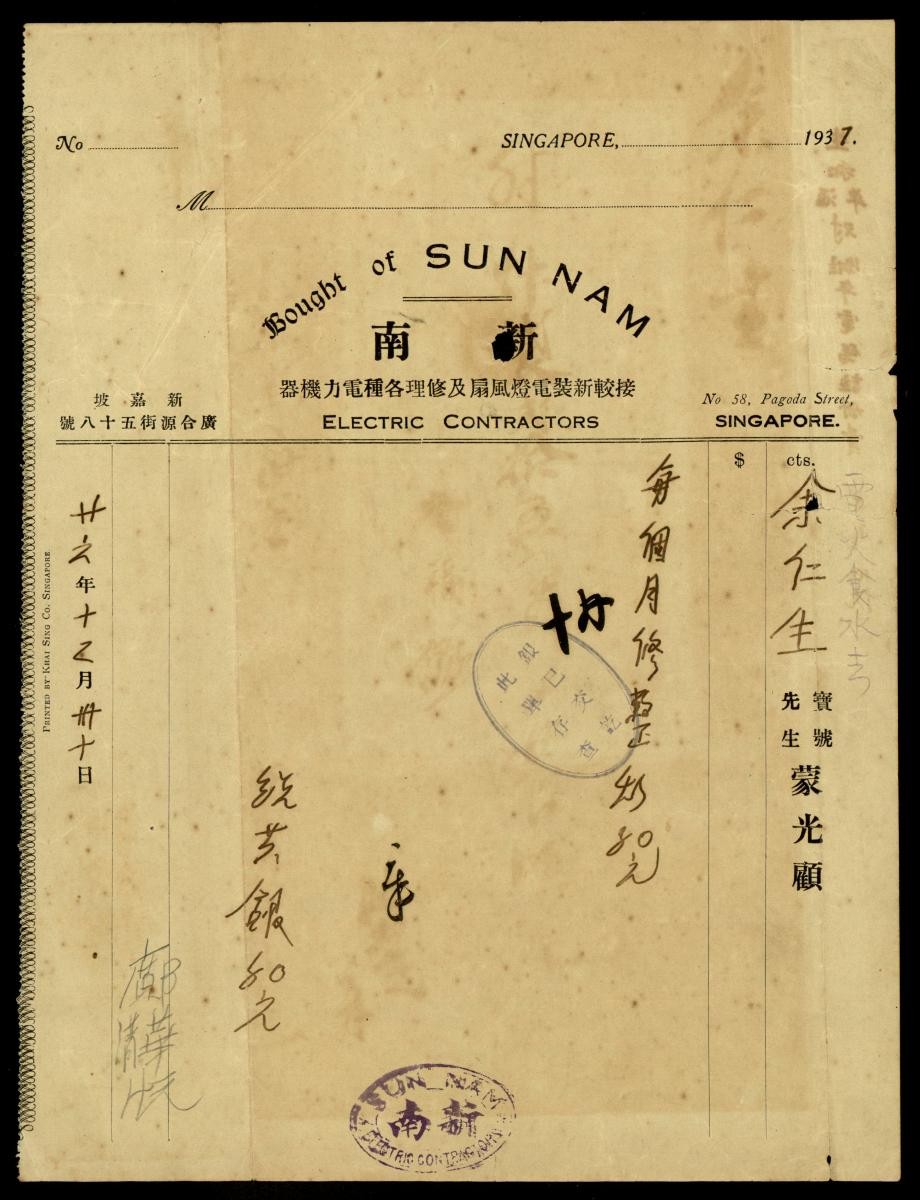 No
SINGAPORE, 1937.
M
Bought of SUN NAM
新南
接較新裝電燈風扇及修理各種電力機器
ELECTRIC CONTRACTORS
新嘉坡
廣合源街五十八號
No 58, Pagoda Street,
SINGAPORE.
$ cts.
余仁生
寶號
先生
蒙光顧
每個月修整
銀已交訖
此單存查
統共銀80元
廿六年十二月卅十日
PRINTED BY KHAI SING CO. SINGAPORE
SUN NAM
新南
ELECTRIC CONTRACTORS